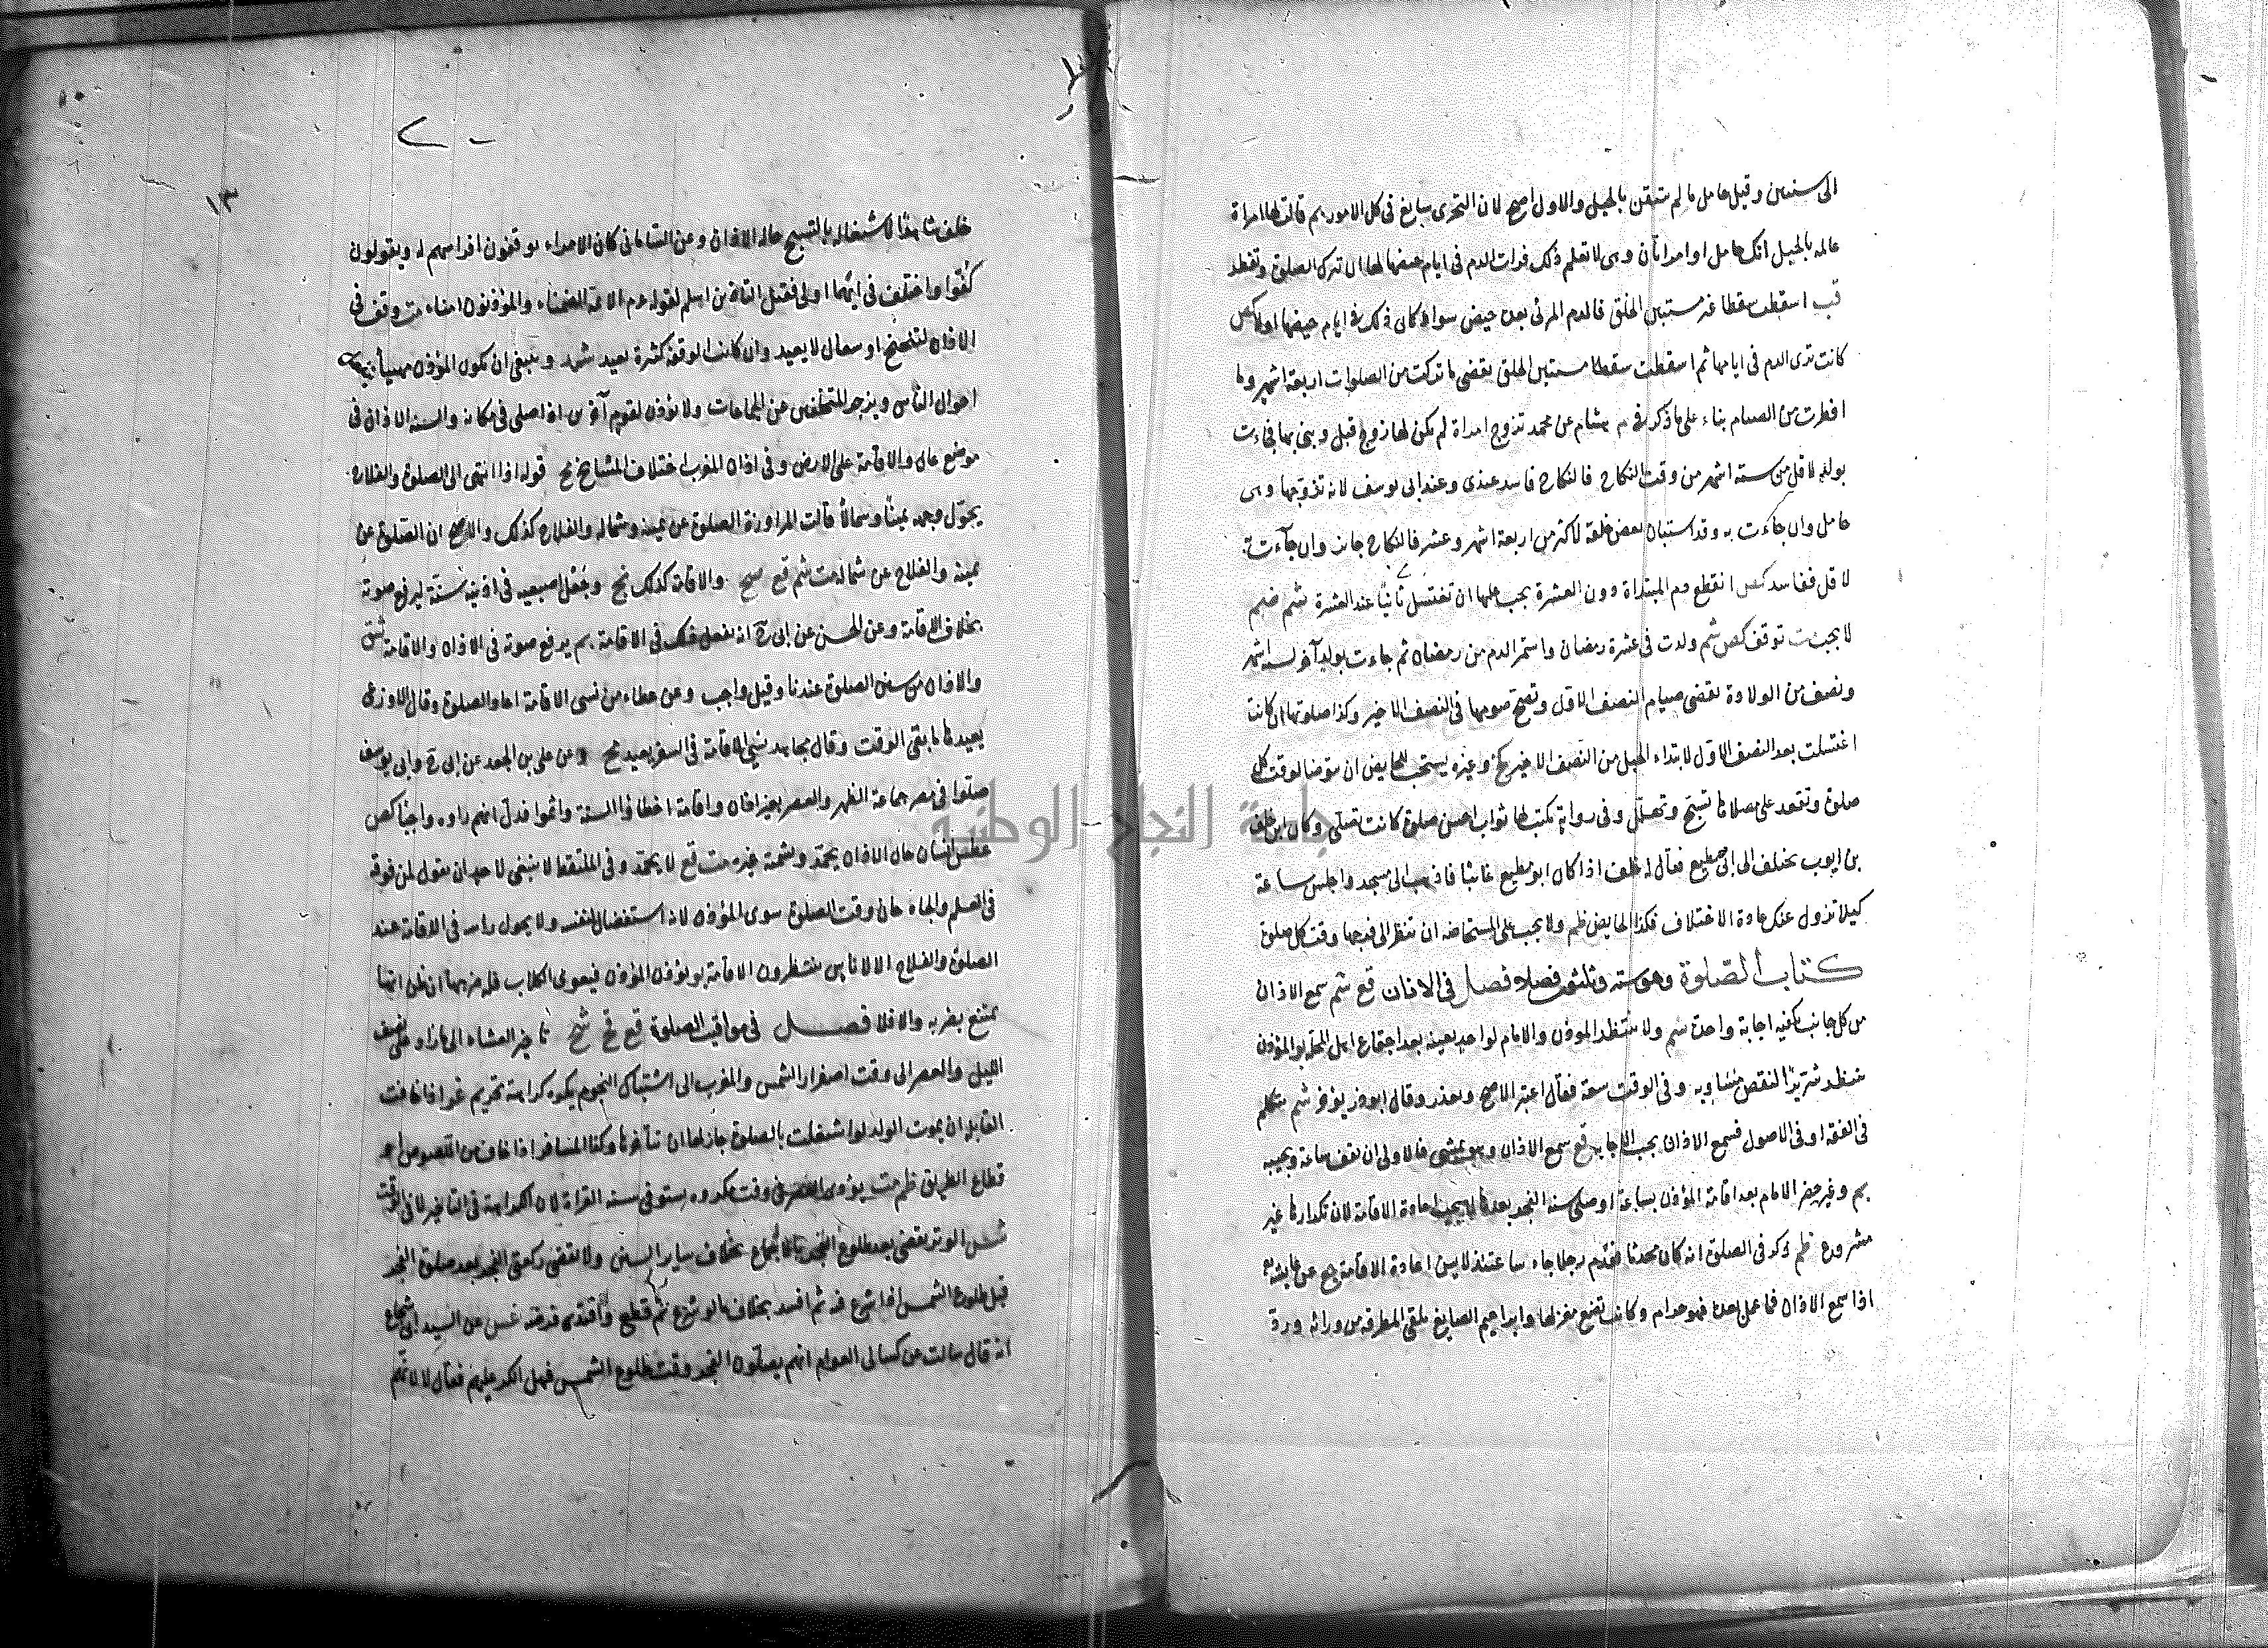 الى سنتين وقيل حامل ما لم تتيقن بالحيل والاول اصح لان التحرى سايغ فى كل الامور بم قالت لها امراة
عالمة بالحبل انك حامل او امراتان وهى لا تعلم ذلك فرات الدم فى ايام حيضها لها ان تترك الصلوة وتفطر
قب اسقطت سقطا غير مستبين الخلق فالدم المرئى بعده حيض سواء كان ذلك فى ايام حيضها او لا كص
كانت ترى الدم فى ايامها ثم اسقطت سقطا مستبين الخلق تقضى ما تركت من الصلوات اربعة اشهر وما
افطرت من الصيام بناء على ما ذكر فى هشام عن محمد تزوج امراة لم يكن لها زوج قبل وبنى بها فجاءت
بولد لاقل من ستة اشهر من وقت النكاح فالنكاح فاسد عندى وعند ابى يوسف لانه تزوجها وهى
حامل وان جاءت به وقد استبان بعض خلقه لاكثر من اربعة اشهر وعشر فالنكاح جايز وان جاءت به
لاقل ففاسد كص انقطع دم المبتداة دون العشرة يجب عليها ان تغتسل ثانيا عند العشرة شم ضم
لا يجب مت توقف كص شم ولدت فى عشرة رمضان واستمر الدم من رمضان ثم جاءت بولد آخر لستة اشهر
ونصف من الولادة تقضى صيام النصف الاول وتصح صومها فى النصف الاخير وكذا صلوتها ان كانت
اغتسلت بعد النصف الاول لابتداء الحبل من النصف الاخير وغيره يستحب للحايض ان تتوضا لوقت كل
صلوة وتقعد على مصلاها تسبح وتهلل وفى رواية يكتب لها ثواب احسن صلوة كانت تصلى وكان ابن خلف
بن ايوب يختلف الى ابى مطيع فقال له خلف اذا كان ابو مطيع غائبا فاذهب الى مسجده واجلس ساعة
كيلا تزول عنك عادة الاختلاف فكذا الحايض ظم ولا يجب على المستحاضه ان تنظر الى فرجها وقت كل صلوة
كتاب الصلوة وهو ستة وثلثون فصلا فصل فى الاذان قع شم سمع الاذان
من كل جانب يكفيه اجابة واحدة شم ولا ينتظر الموذن والامام لواحد بعينه بعد اجتماع اهل المحلة بو المؤذن
ينتظر شريرا لنقص مساويه وفى الوقت سعة فقال اعتبر الاصح ويعذر وقال ابو ذر يؤخر شم يتكلم
فى الفقه او فى الاصول فسمع الاذان يجب الاجابة قع سمع الاذان وهو يمشى فالاولى ان يقف ساعة ويجيبه
بم وغير حضر الامام بعد اقامة المؤذن بساعة او صلى سنة الفجر بعدها لا يجب اعادة الاقامة لان تكرارها غير
مشروع ظم ذكر فى الصلوة انه كان محدثا فقدم رجلا جاء ساعتئذ لا يسن اعادة الاقامة جع عن عايشه
اذا سمع الاذان فما عمل بعده فهو حرام وكانت تضع مغزلها وابراهيم الصايغ يلقى المطرقة من ورائه ورد
١٣
خلف شاهدا لاشتغاله بالتسبيح حالة الاذان وعن السلمانى كان الامراء يوقفون افراسهم له ويقولون
كفوا واختلف فى ايهما اولى فقيل التاذين اسلم لقوله عم الائمة الضمناء والمؤذنون امناء مت وقف فى
الاذان لتنحنح او سعال لا يعيد وان كانت الوقفة كثيرة يعيد شد وينبغى ان يكون المؤذن مهيبا
احوال الناس ويزجر المتخلفين عن الجماعات ولا يؤذن لقوم آخرين اذا صلى فى مكانه والسنه الاذان فى
موضع عال والاقامة على الارض وفى اذان المغرب اختلاف المشايخ مح قوله اذا انتهى الى الصلوة والفلاح
يحول وجهه يمينا وشمالا قالت المراوزة الصلوة عن يمينه وشماله والفلاح كذلك والاصح ان الصلوة عن
يمينه والفلاح عن شماله مت شم قع والاقامة كذلك نج وجعل اصبعيه فى اذنيه سنة ليرفع صوته
بخلاف الاقامة وعن الحسن عن ابى ح انه يفعل ذلك فى الاقامة بم يرفع صوته فى الاذان والاقامة
والاذان من سنن الصلوة عندنا وقيل واجب وعن عطاء من نسى الاقامة اعاد الصلوة وقال الاوزعى
يعيد ما بقى الوقت وقال مجاهد نسى الاقامة فى السفر يعيد مح وعن على بن الجعد عن ابى ح وابى يوسف
صلوا فى مصر جماعة الظهر والعصر بغير اذان واقامة اخطاؤا السنة واثموا فدل انهم راوه واجبا كص
عطس انسان حال الاذان يحمد ويشمته غيره مت قع لا يحمد وفى الملتقط لا ينبغى لاحد ان يقول لمن فوقه
فى العلم والجاه حان وقت الصلوة سوى المؤذن لانه استفضال لنفسه ولا يحول راسه فى الاقامة عند
الصلوة والفلاح الا لاناس ينتظرون الاقامة بو يؤذن المؤذن فيعوى الكلاب فله ضربها ان ظن انها
تمتنع بضربه والا فلا فصل فى مواقيت الصلوة قع قح شح تاخير العشاء الى ما زاد على نصف
الليل والعصر الى وقت اصفرار الشمس والمغرب الى اشتباك النجوم يكره كراهة تحريم غر اذا خافت
القابلة ان يموت الولد لو اشتغلت بالصلوة جاز لها ان تتأخرها وكذا المسافر اذا خاف من اللصوص او
قطاع الطريق ظم مت يؤدى العصر فى وقت مكروه يستوفى سنة القراة لان الكراهة فى التاخير لا فى الوقت
الوتر يقضى بعد طلوع الفجر بالاجماع بخلاف ساير السنن ولا يقضى ركعتى الفجر بعد صلوة الفجر
قبل طلوع الشمس اذا شرع فيه ثم افسد بخلاف ما لو شرع ثم قطع واقتدى فرضه عن السيد ابى شجاع
انه قال سالت عن كسالى العوام انهم يصلون الفجر وقت طلوع الشمس فهل انكر عليهم فقال لا لانهم
جامعة النجاح الوطنية